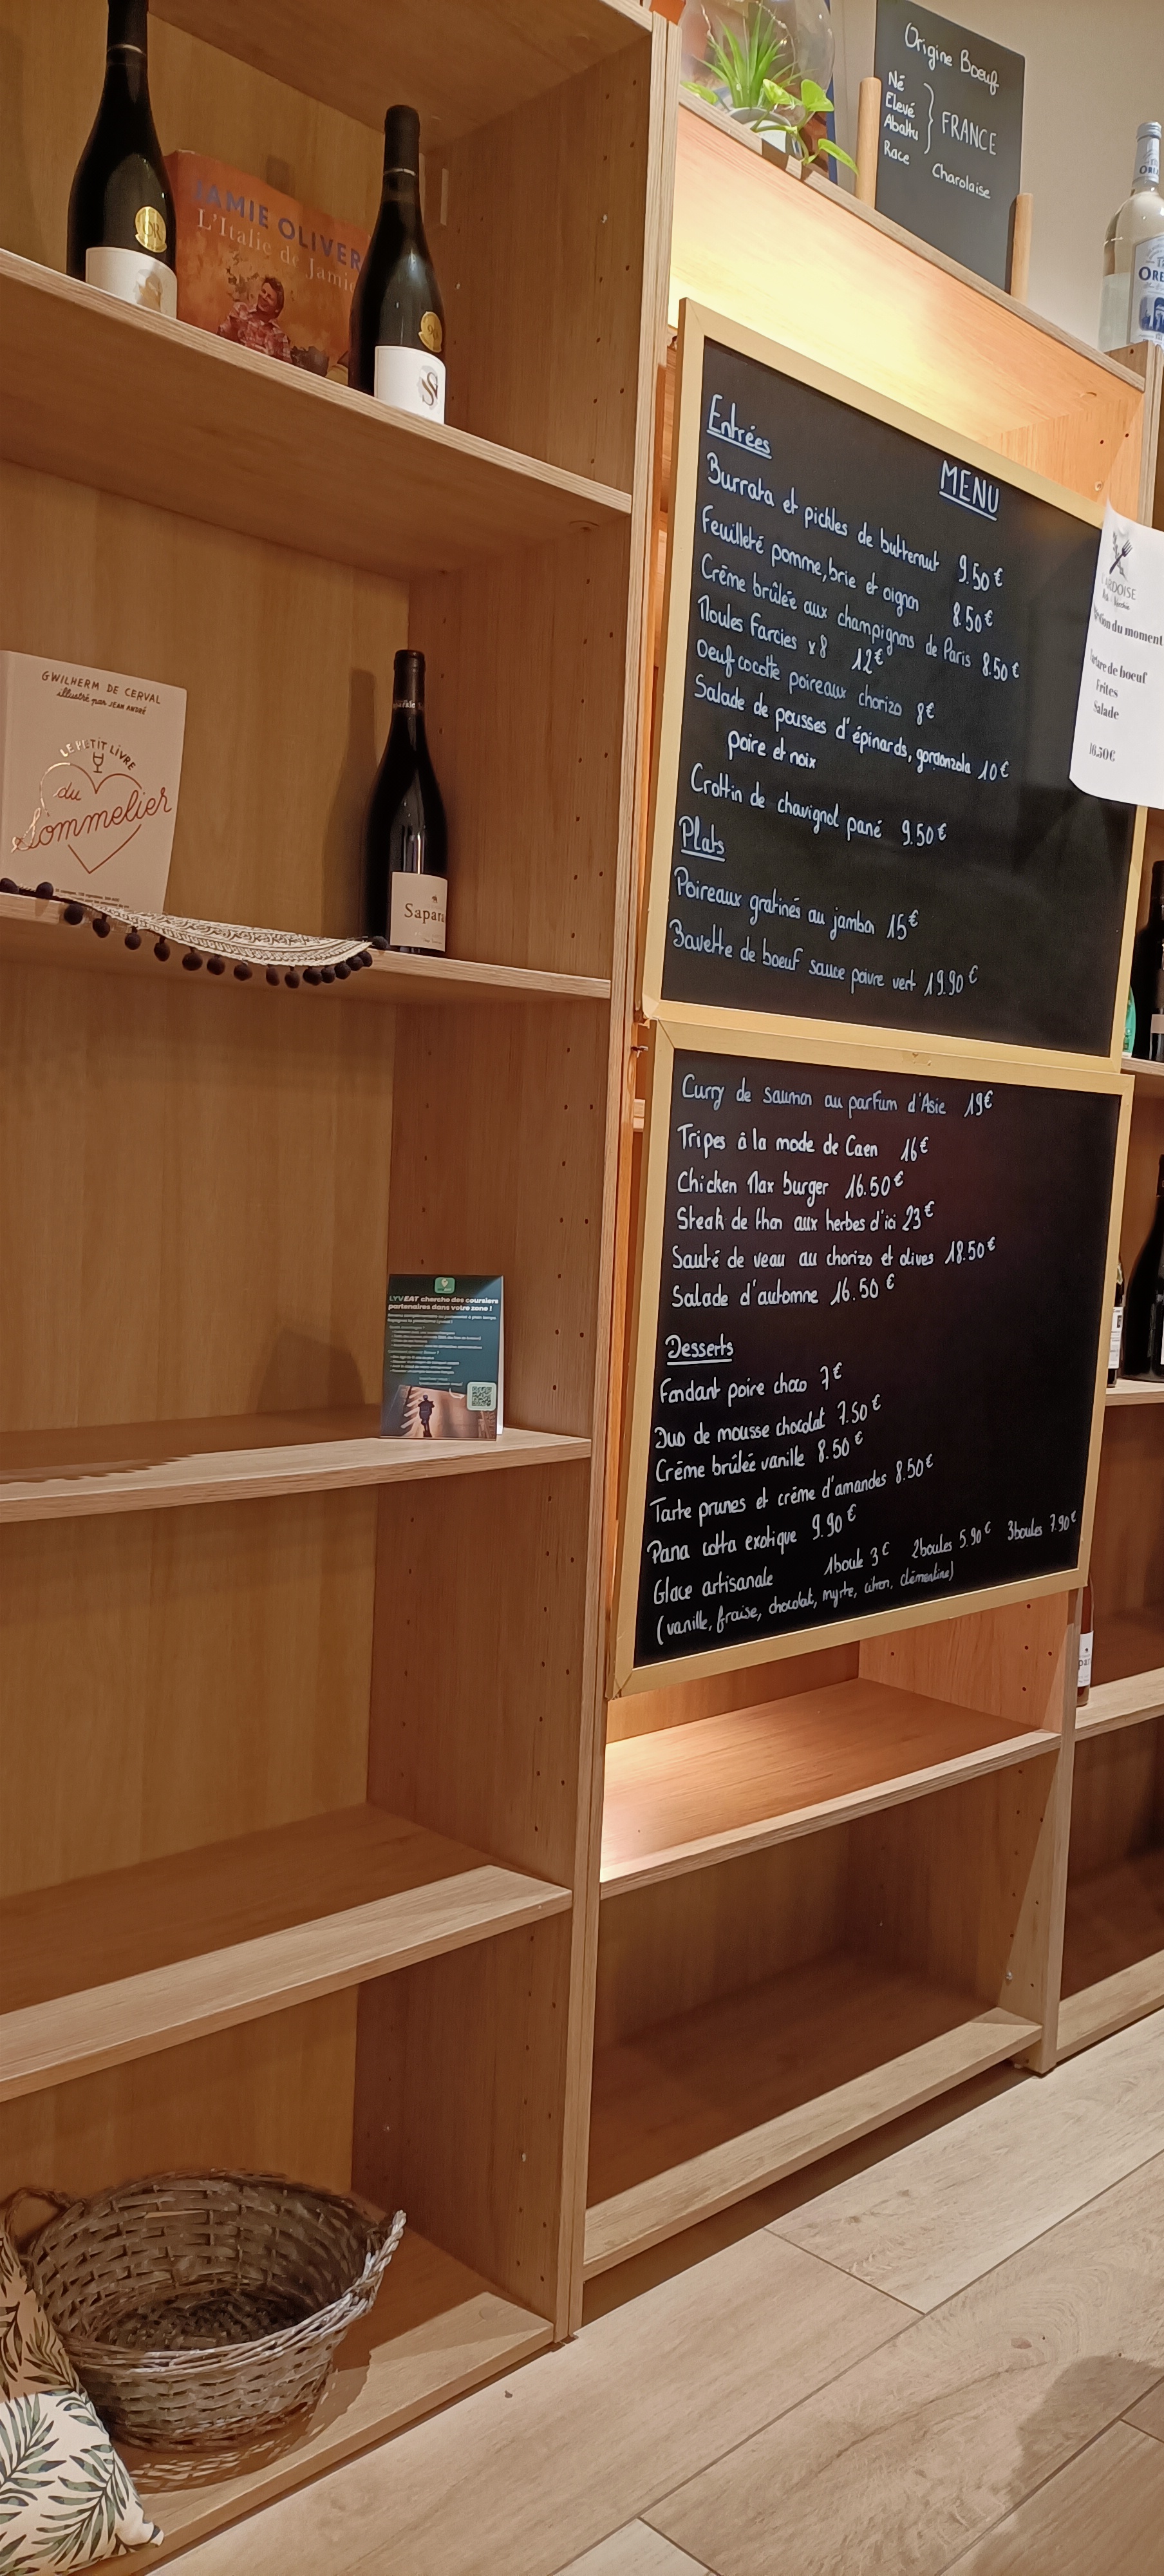 JAMIE OLIVER
L'Italie de Jamie
S
GWILHERM DE CERVAL
illustré par JEAN ANDRÉ
LE PETIT LIVRE
du
Sommelier
Sapara
LYVEAT cherche des coursiers
partenaires dans votre zone !
Origine Boeuf
Né
Elevé
Abattu
FRANCE
Race Charolaise
MENU
Entrées
Burrata et pickles de butternut 9.50€
Feuilleté pomme, brie et oignon 8.50€
Crème brûlée aux champignons de Paris 8.50€
Moules Farcies x8 12€
Oeuf cocotte poireaux chorizo 8€
Salade de pousses d'épinards, gorgonzola 10€
poire et noix
Crottin de chavignol pané 9.50€
Plats
Poireaux gratinés au jambon 15€
Bavette de boeuf sauce poivre vert 19.90€
Curry de saumon au parfum d'Asie 19€
Tripes à la mode de Caen 16€
Chicken Max burger 16.50€
Steak de thon aux herbes d'ici 23€
Sauté de veau au chorizo et olives 18.50€
Salade d'automne 16.50€
Desserts
Fondant poire choco 7€
Duo de mousse chocolat 7.50€
Crème brûlée vanille 8.50€
Tarte prunes et crème d'amandes 8.50€
Pana cotta exotique 9.90€
Glace artisanale 1boule 3€ 2boules 5.90€ 3boules 7.90€
(vanille, fraise, chocolat, myrte, citron, clémentine)
ARDOISE
du moment
de boeuf
Frites
Salade
16.50€
ORE